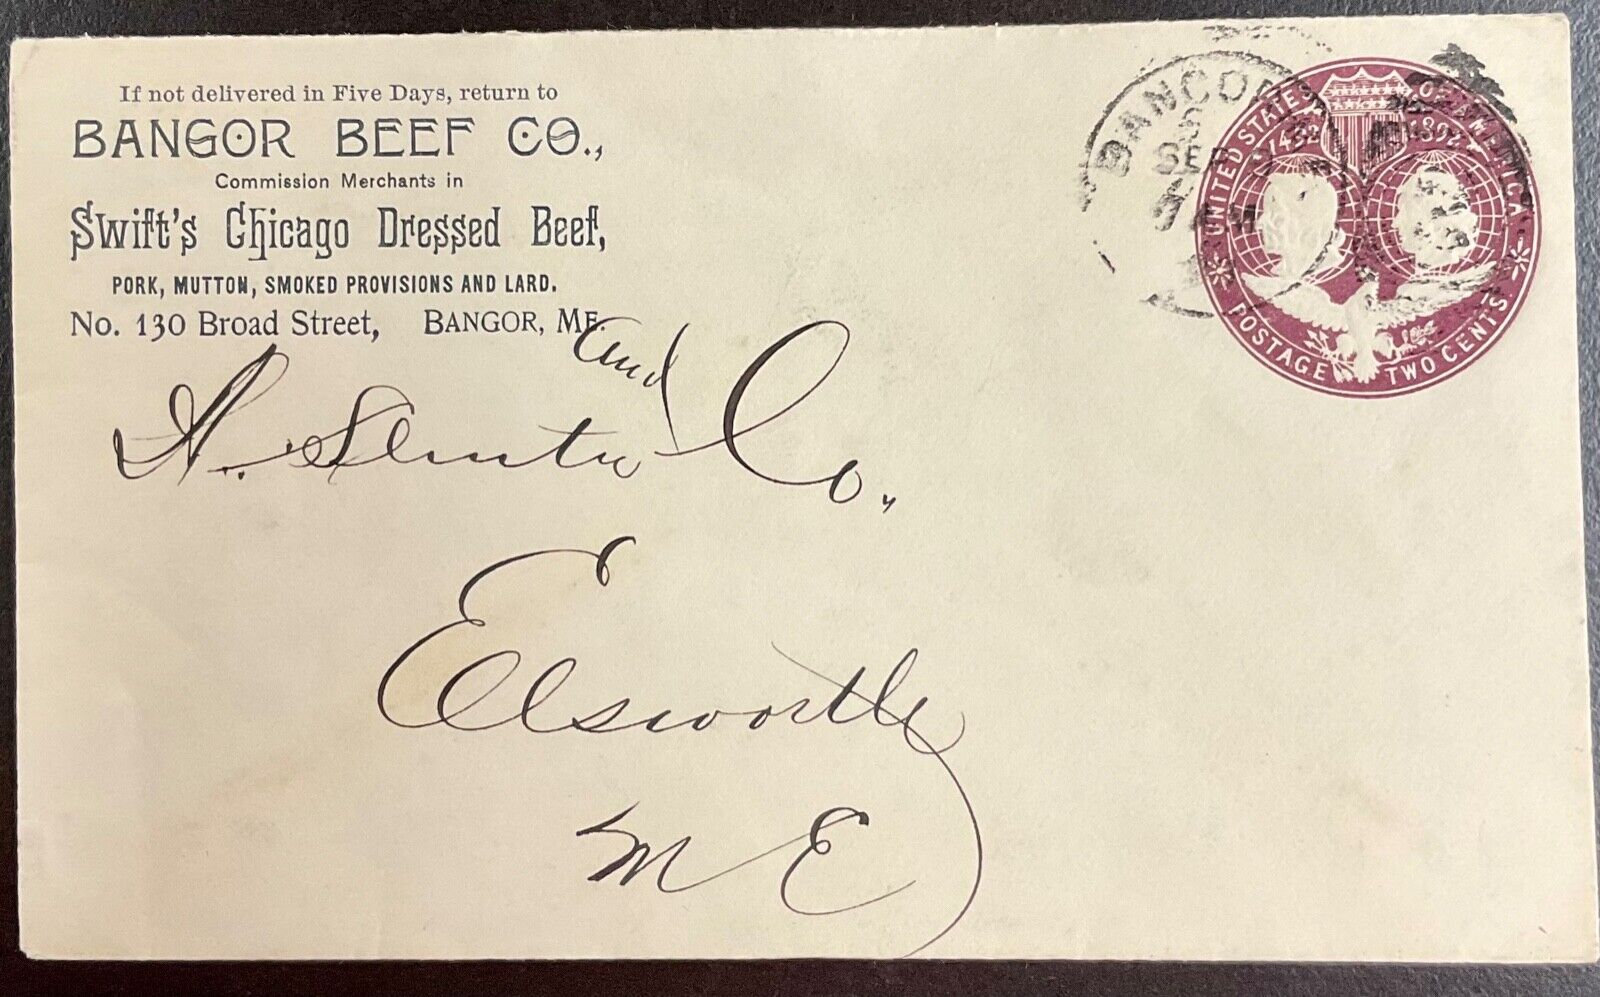 If not delivered in Five Days, return to
BANGOR BEEF CO.,
Commission Merchants in
Swift's Chicago Dressed Beef,
PORK, MUTTON, SMOKED PROVISIONS AND LARD.
No. 130 Broad Street, BANGOR, ME.
BANGOR
SEP
UNITED STATES OF AMERICA
1492 1892
POSTAGE TWO CENTS
A. and Co.,
Elsworth
ME